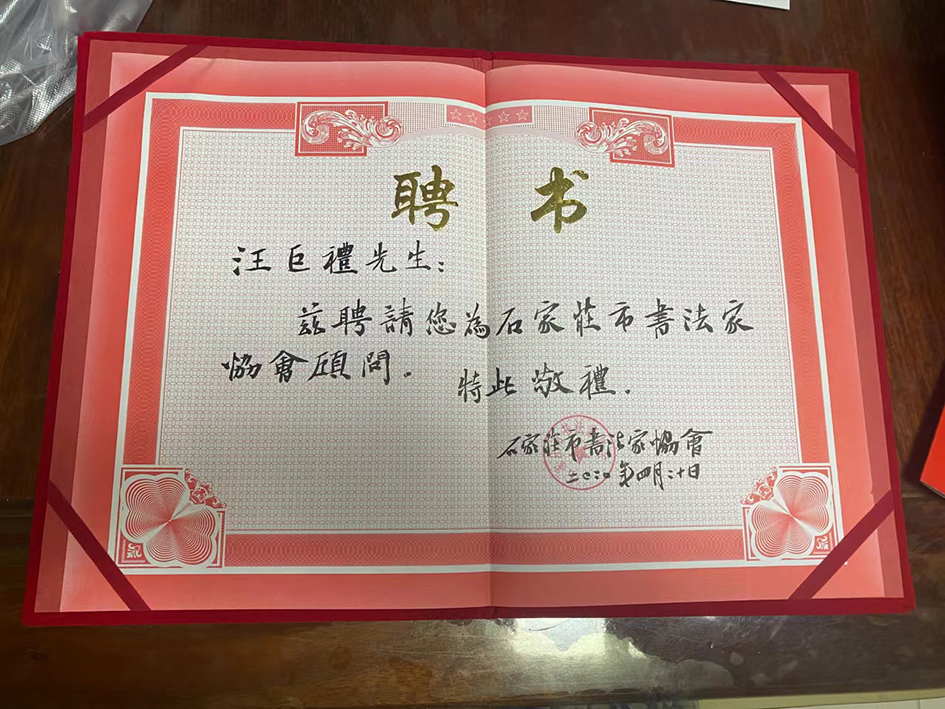 聘书
汪巨禮先生：
兹聘請您為石家莊市書法家
協會顧問。
特此敬禮.
石家莊市書法家協會
二〇二〇年四月二十日